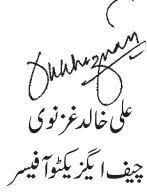 علی خالد غزنوی
چیف ایگزیکٹو آفیسر